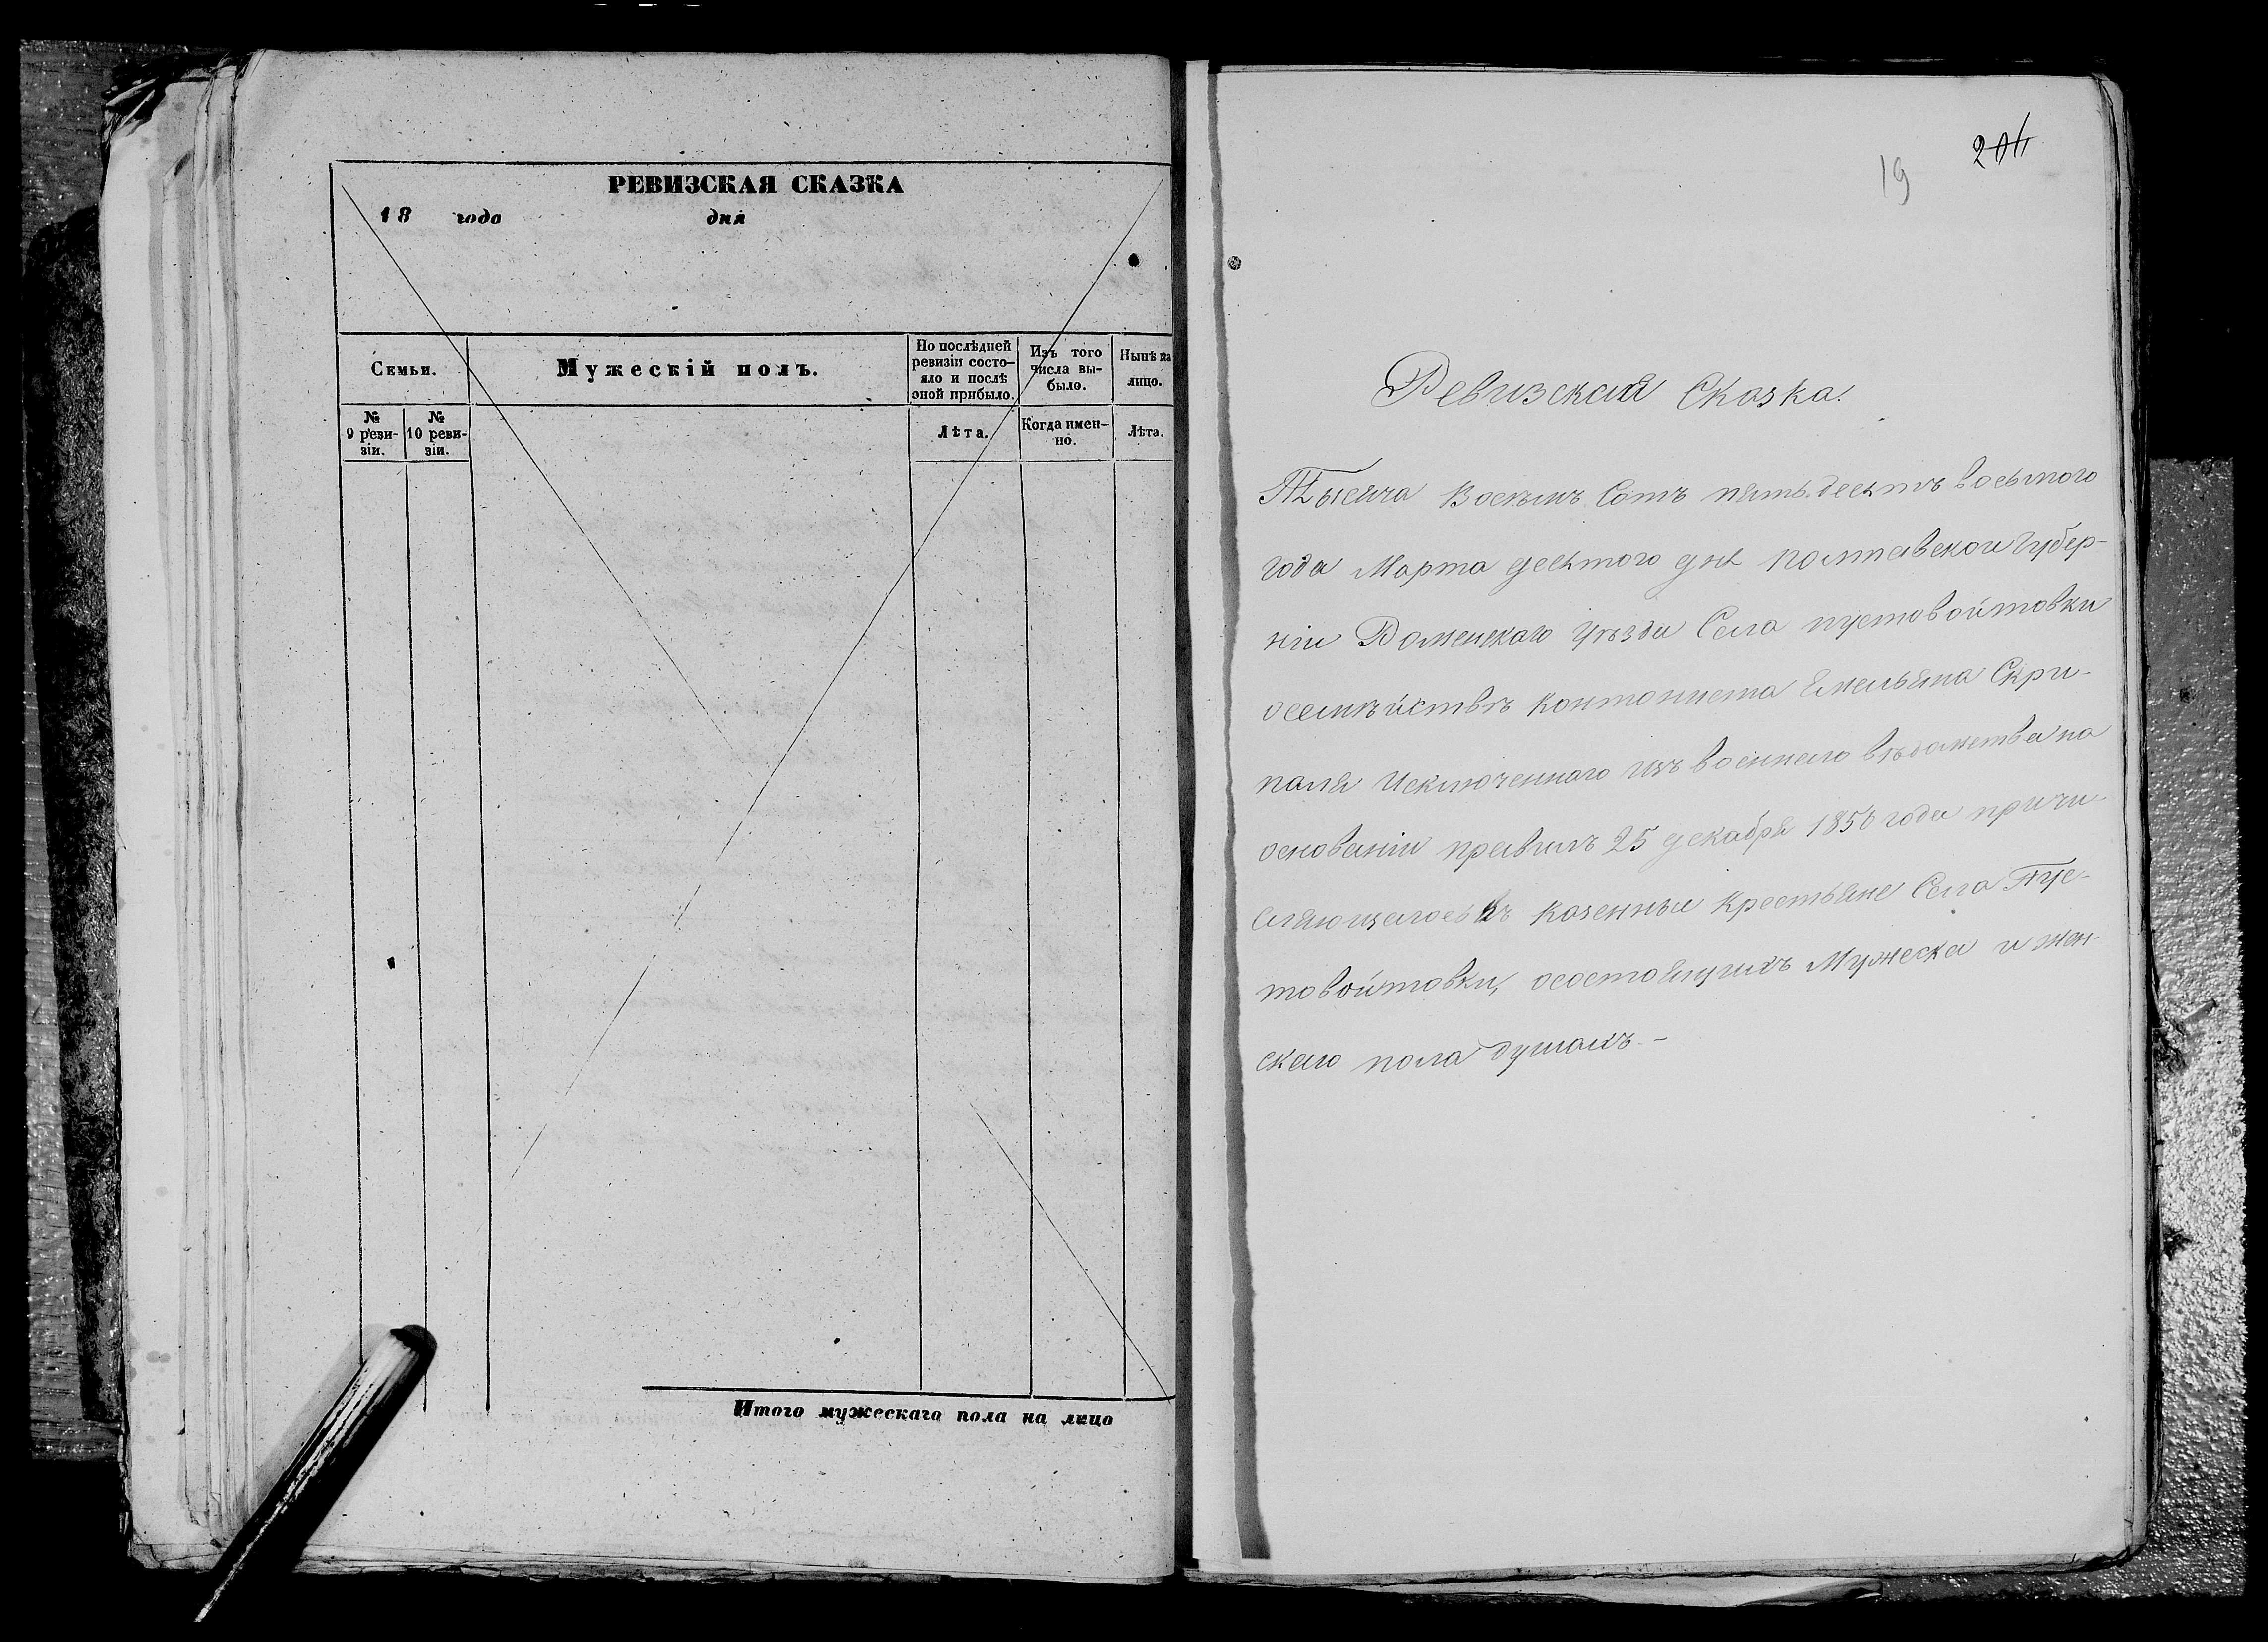 РЕВИЗСКАЯ СКАЗКА
18 года дня
Семьи.
Мужескій полъ.
По послѣдней
ревизіи состо-
яло и послѣ
оной прибыло.
Изъ того
числа вы-
было.
Нынѣ на
лицо.
№
9 реви-
зіи.
№
10 реви-
зіи.
Лѣта.
Когда имен-
но.
Лѣта.
Итого мужескаго пола на лицо
19
Ревизская Сказка.
Тысяча Восемъ Сотъ пятьдесятъ восьмого
года Марта десятого дня полтавской Губер-
ніи Роменскаго уѣзда Села пустовойтовки
осемѣйствѣ контониста Емельяна Скри-
паля Исключенного изъ военнаго вѣдомства на
основаніи правилъ 25 декабря 1856 года причи-
сляющагося въ казенныи крестьяне Села Пус-
товойтовки, осостоящихъ Мужеска и жен-
скаго пола душахъ -